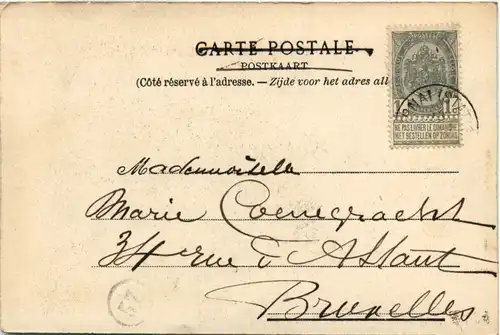 CARTE POSTALE
POSTKAART
(Côté réservé à l'adresse. — Zijde voor het adres all
1
NE PAS LIVRER LE DIMANCHE
NIET BESTELLEN OP ZONDAG
Mademoiselle
Marie Coenegracht
34 rue d'Assaut
Bruxelles